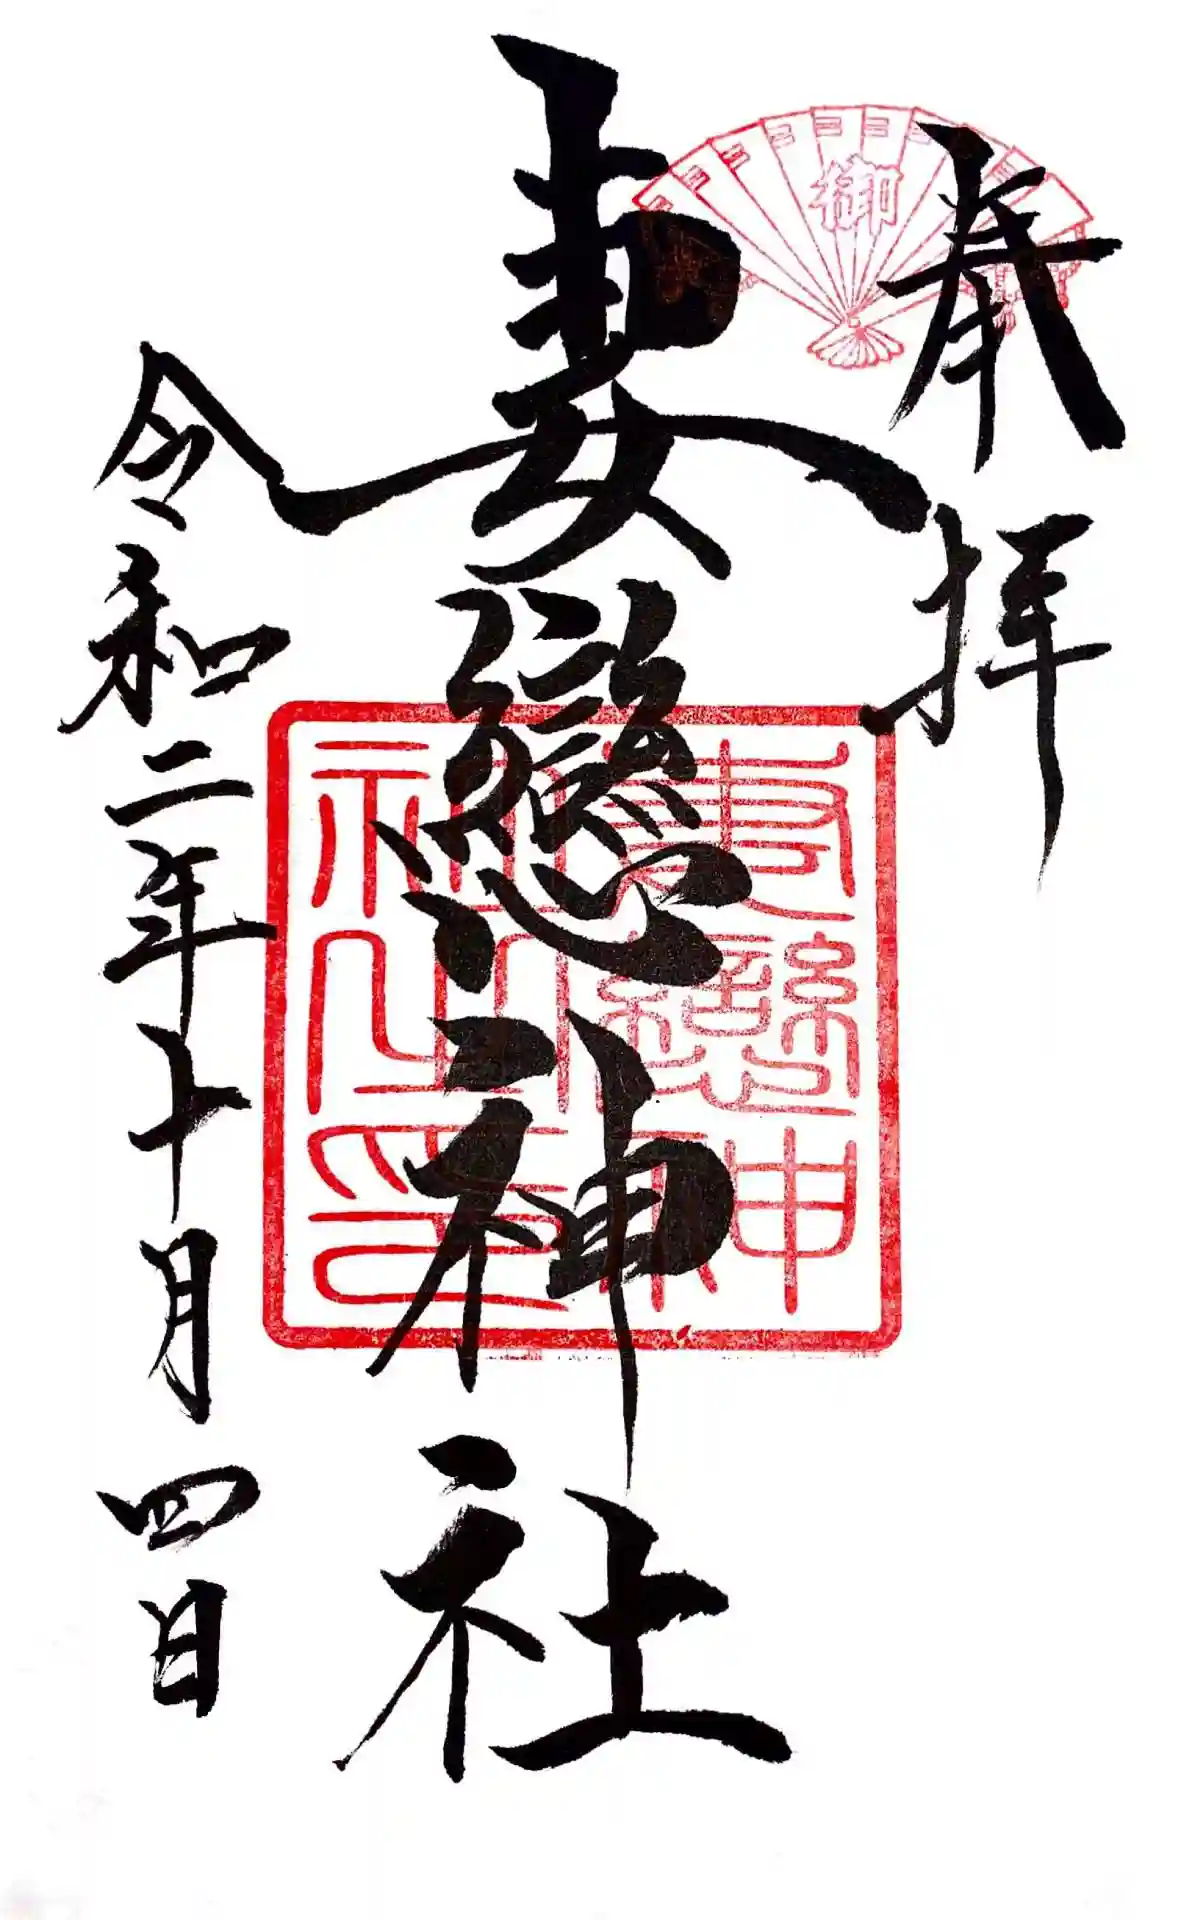 奉拝
御
妻戀神社
妻戀神社神主印
令和二年十月四日